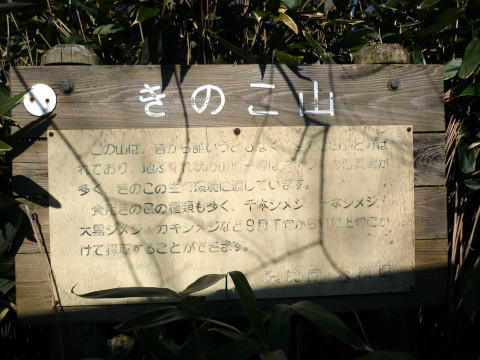 きのこ山
この山は、昔から誰いうともなく きのこ山と呼ば
れており、地
多く、きのこの生育環境に適しています。
食用きのこの種類も多く、千本シメジ 一本シメジ
大黒シメジ・カキシメジなど9月下旬から11月上旬にか
けて採取することができます。
環境庁